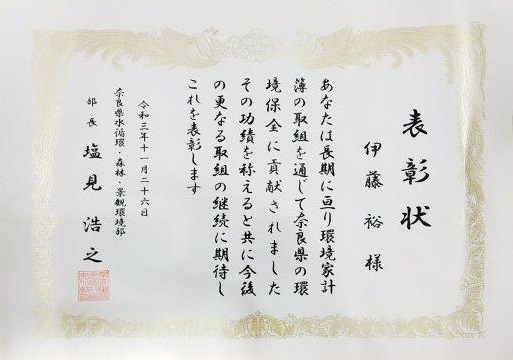 表彰状
伊藤裕様
あなたは長期に亘り環境家計
簿の取組を通じて奈良県の環
境保全に貢献されました
その功績を称えると共に今後
の更なる取組の継続に期待し
これを表彰します
令和三年十一月二十六日
奈良県水循環・森林・景観環境部
部長 塩見浩之